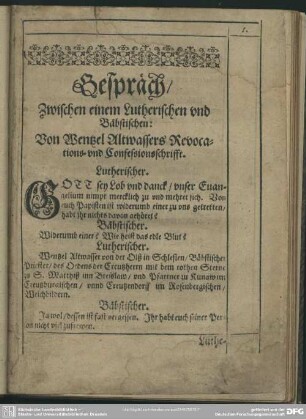 1.
Gespräch/
Zwischen einem Lutherischen vnd
Bäbstischen:
Von Wentzel Altwassers Revoca-
tions- vnd Confessionschrifft.
Lutherischer.
GOTT sey Lob vnd danck/ vnser Euan-
gelium nimpt mercklich zu vnd mehret sich. Von
euch Papisten ist widerumb einer zu vns getretten/
habt ihr nichts davon gehöret?
Bäbstischer.
Widerumb einer? Wie heist das edle Blut?
Lutherischer.
Wentzel Altwasser von der Olß in Schlesien/ Bäbstischer
Priester/ des Ordens der Creutzherrn mit dem rothen Stern
zu S. Matthiß inn Breßlaw/ vnd Pfarrner zu Kunatz im
Creutzburgischen/ vnnd Creutzendorff im Rosenbergischen/
Weichbildern.
Bäbstischer.
Ja wol/ dessen ist fast vergessen. Ihr habt euch seiner Per-
son nicht viel zufrewen.
Luthe-